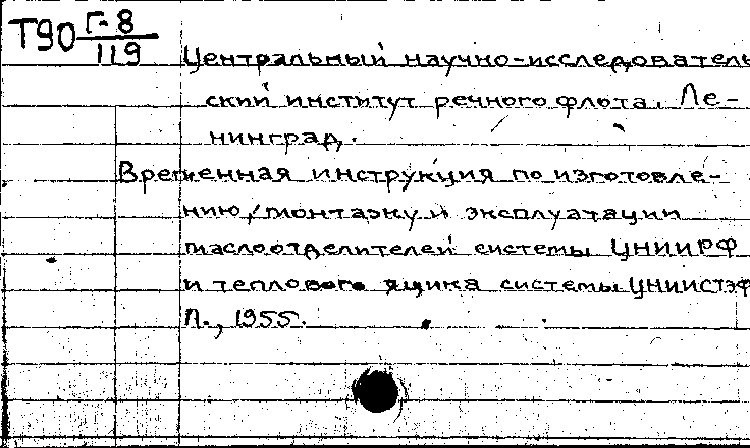 Т90 Г-8
119
Центральный научно-исследователь
ский институт речного флота. Ле-
нинград.
Временная инструкция по изготовле-
нию, монтажу и эксплуатации
маслоотделителей системы ЦНИИРФ
и теплового ящика системы ЦНИИСТЭФ
Л., 1955.